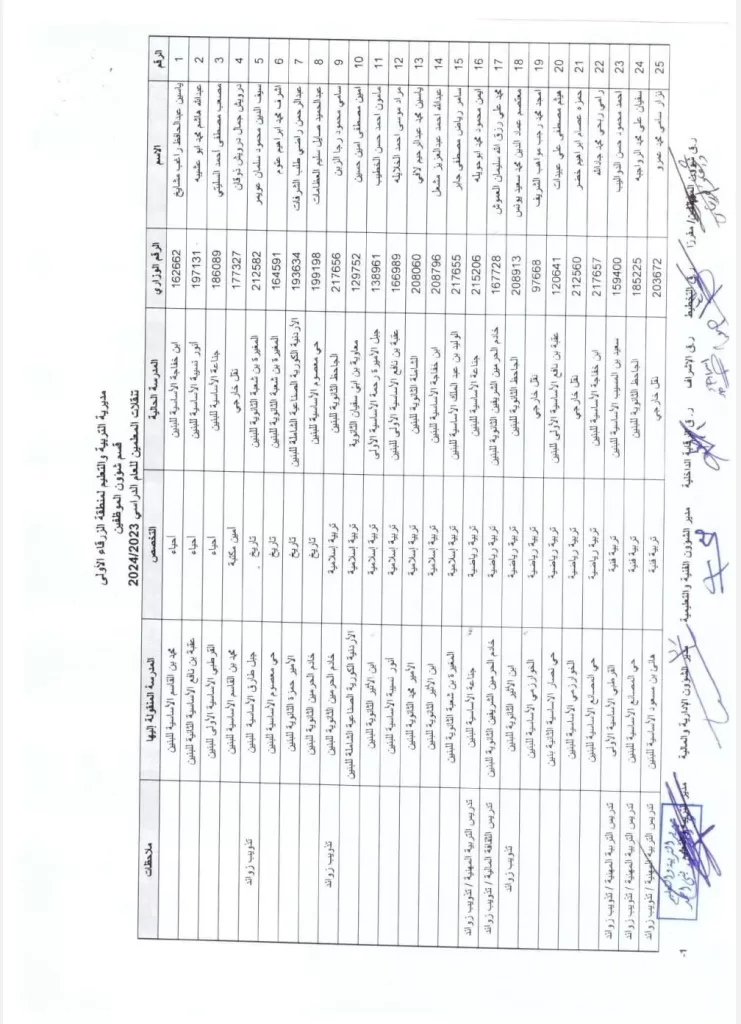 مديرية التربية والتعليم لمنطقة الزرقاء الأولى
قسم شؤون الموظفين
تنقلات المعلمين للعام الدراسي 2024/2023
الرقم الاسم الرقم الوزاري المدرسة الحالية التخصص المدرسة المنقولة إليها ملاحظات
1 ياسين عبدالحافظ راغب مشايخ 162662 ابن خفاجة الأساسية للبنين أحياء محمد بن القاسم الأساسية للبنين
2 عبدالله هاشم محمد ابو عشيبه 197131 أنور نسيبة الأساسية للبنين أحياء عقبة بن نافع الأساسية الثانية للبنين
3 مصعب مصطفى احمد السليتي 186089 جناعة الأساسية للبنين أحياء القرطبي الأساسية الأولى للبنين
4 درويش جمال درويش ذوقان 177327 نقل خارجي أمين مكتبة محمد بن القاسم الأساسية للبنين
5 سيف الدين محمود سلمان عويمر 212582 المغيرة بن شعبة الثانوية للبنين تاريخ جبل طارق الأساسية للبنين تذويب زوائد
6 اشرف محمد ابراهيم عتوم 164591 المغيرة بن شعبة الثانوية للبنين تاريخ حي معصوم الأساسية للبنين
7 عبدالرحمن راضي طلب الشرفات 193634 الأردنية الكورية الصناعية الشاملة للبنين تاريخ الأمير حمزة الثانوية للبنين
8 عبدالحميد صايل سليم العظامات 199198 حي معصوم الأساسية للبنين تاريخ خادم الحرمين الثانوية للبنين
9 سامي محمود رجا الزين 217656 الجاحظ الثانوية للبنين تربية إسلامية خادم الحرمين الثانوية للبنين تذويب زوائد
10 امين مصطفى امين حسين 129752 معاوية بن ابي سفيان الثانوية تربية إسلامية الأردنية الكورية الصناعية الشاملة للبنين
11 مأمون احمد حسن الخطيب 138961 جبل الأميرة رحمة الأساسية الأولى تربية إسلامية ابن الأثير الثانوية للبنين
12 مراد موسى احمد الخلايله 166989 عقبة بن نافع الأساسية الأولى للبنين تربية إسلامية أنور نسيبة الأساسية للبنين
13 ياسين محمد عبدالرحيم لافي 208060 الشاملة الثانوية للبنين تربية إسلامية الأمير محمد الثانوية للبنين
14 عبدالله احمد عبدالعزيز مشعل 208796 ابن خفاجة الأساسية للبنين تربية إسلامية ابن الأثير الثانوية للبنين
15 سامر رياض مصطفى جابر 217655 الوليد بن عبد الملك الأساسية للبنين تربية إسلامية المغيرة بن شعبة الثانوية للبنين
16 ايمن محمود محمد ابو حويله 215206 جناعة الأساسية للبنين تربية رياضية جناعة الأساسية للبنين تدريس التربية المهنية / تذويب زوائد
17 محمد علي رزق الله سليمان العموش 167728 خادم الحرمين الشريفين الثانوية للبنين تربية رياضية خادم الحرمين الشريفين الثانوية للبنين تدريس الثقافة المالية / تذويب زوائد
18 معتصم عماد الدين محمد سعيد يونس 208913 الجاحظ الثانوية للبنين تربية رياضية ابن الأثير الثانوية للبنين تذويب زوائد
19 امجد محمد رجب مواهب الشريف 97668 نقل خارجي تربية رياضية الخوارزمي الأساسية للبنين
20 هيثم مصطفى علي عبيدات 120641 عقبة بن نافع الأساسية الأولى للبنين تربية رياضية حي نصار الأساسية الثانية بنين
21 حمزه عصام ابراهيم خضر 212560 نقل خارجي تربية رياضية الخوارزمي الأساسية للبنين
22 رامي ربحي محمد جادالله 217657 ابن خفاجة الأساسية للبنين تربية رياضية حي المصانع الأساسية للبنين
23 احمد محمود حسن الدواليب 159400 سعيد بن المسيب الأساسية للبنين تربية فنية القرطبي الأساسية الأولى تدريس التربية المهنية / تذويب زوائد
24 سفيان علي محمد الرواجبه 185225 الجاحظ الثانوية للبنين تربية فنية حي المصانع الأساسية للبنين تدريس التربية المهنية / تذويب زوائد
25 نزار سامي محمد عمرو 203672 نقل خارجي تربية فنية هاني بن مسعود الأساسية للبنين تدريس التربية المهنية / تذويب زوائد
ر.ق شؤون الموظفين/ مقررا ر.ق التخطيط ر.ق الإشراف ر.ق الرقابة الداخلية مدير الشؤون الفنية والتعليمية مدير الشؤون الادارية والمالية مدير التربية والتعليم
-1